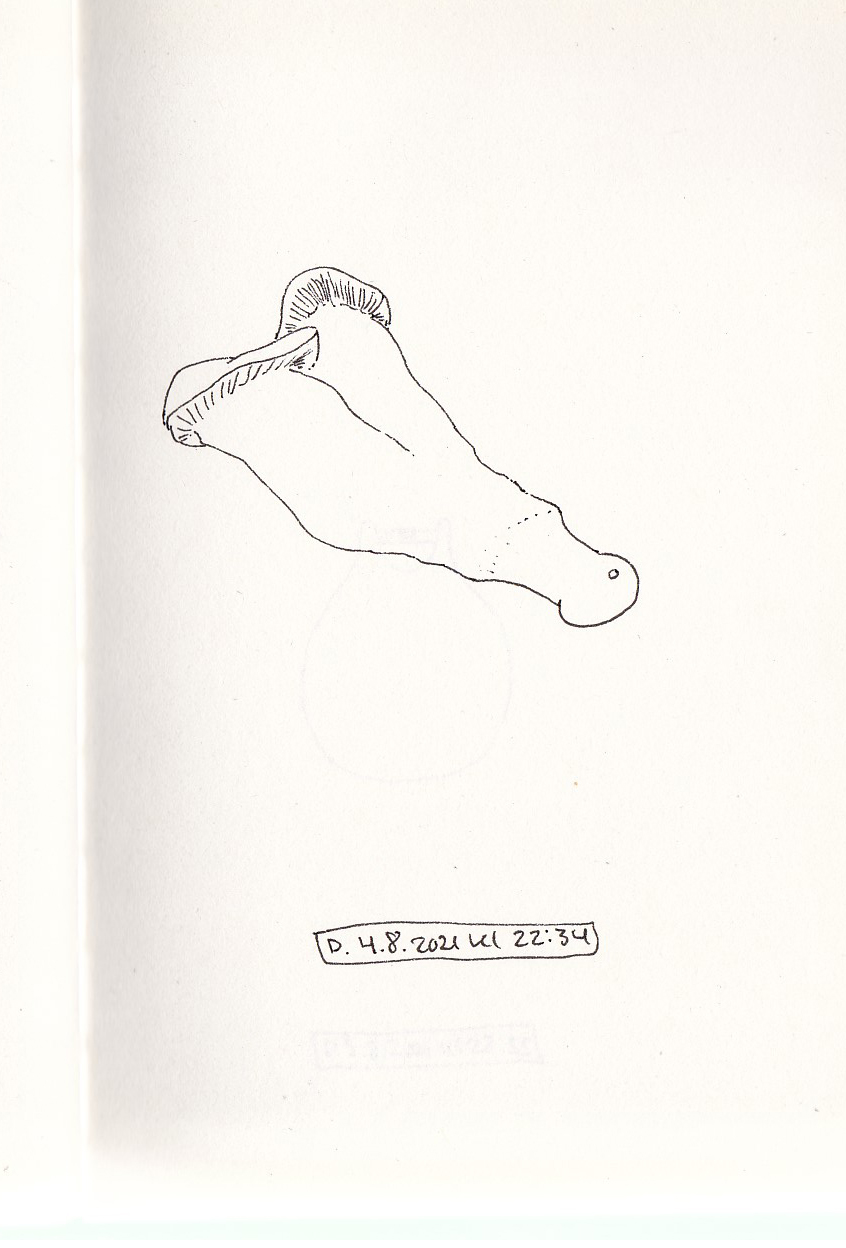 D. 4.8.2021 kl 22:34